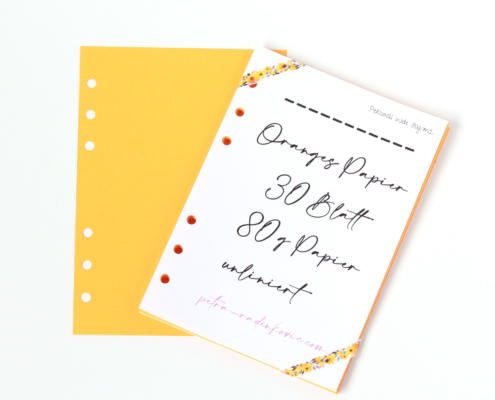 Personal wide 80g m2
Oranges Papier
30 Blatt
80 g Papier
unliniert
petra-radenkovic.com